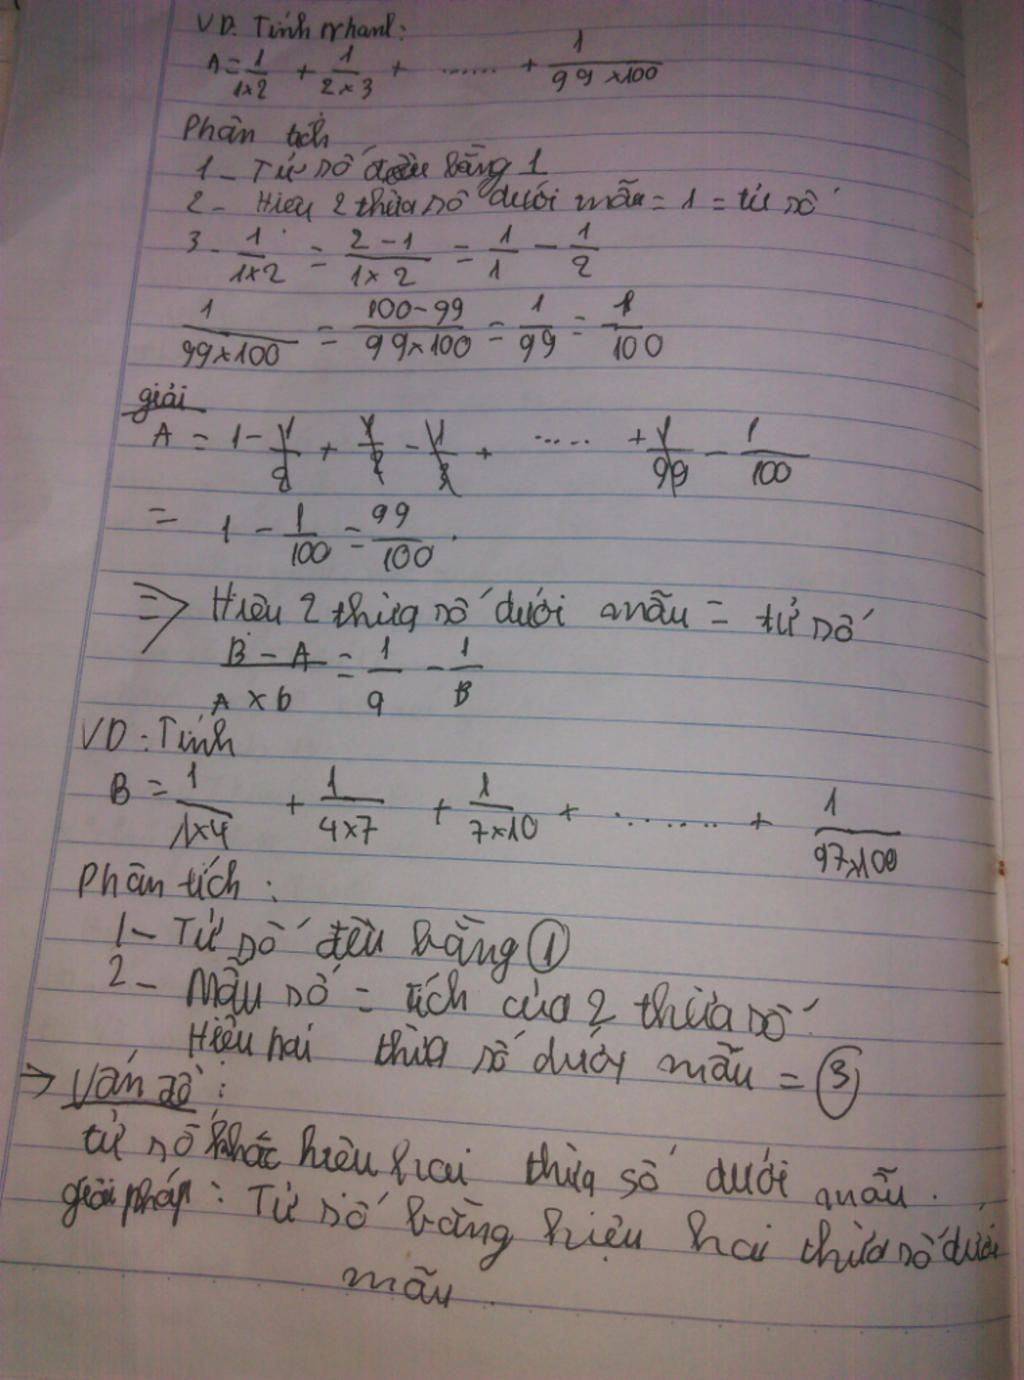 VD: Tính nhanh:
A = 1/1×2 + 1/2×3 + ...... + 1/99×100
Phân tích
1 - Tử số đều bằng 1
2 - Hiệu 2 thừa số dưới mẫu = 1 = tử số
3 - 1/1×2 = 2-1/1×2 = 1/1 - 1/2
1/99×100 = 100-99/99×100 = 1/99 = 1/100
giải
A = 1 - 1/2 + 1/2 - 1/3 + ..... + 1/99 - 1/100
= 1 - 1/100 = 99/100.
=> Hiệu 2 thừa số dưới mẫu = tử số
B - A/A × b = 1/a - 1/B
VD: Tính
B = 1/1×4 + 1/4×7 + 1/7×10 + ........ + 1/97×100
Phân tích:
1 - Tử số đều bằng 1
2 - Mẫu số = tích của 2 thừa số
Hiệu hai thừa số dưới mẫu = 3
→ Vấn đề:
tử số khác hiệu hai thừa số dưới mẫu.
giải pháp: Tử số bằng hiệu hai thừa số dưới
mẫu.